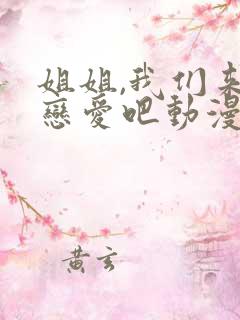 姐姐,我们来
戀愛吧動漫
黄玄